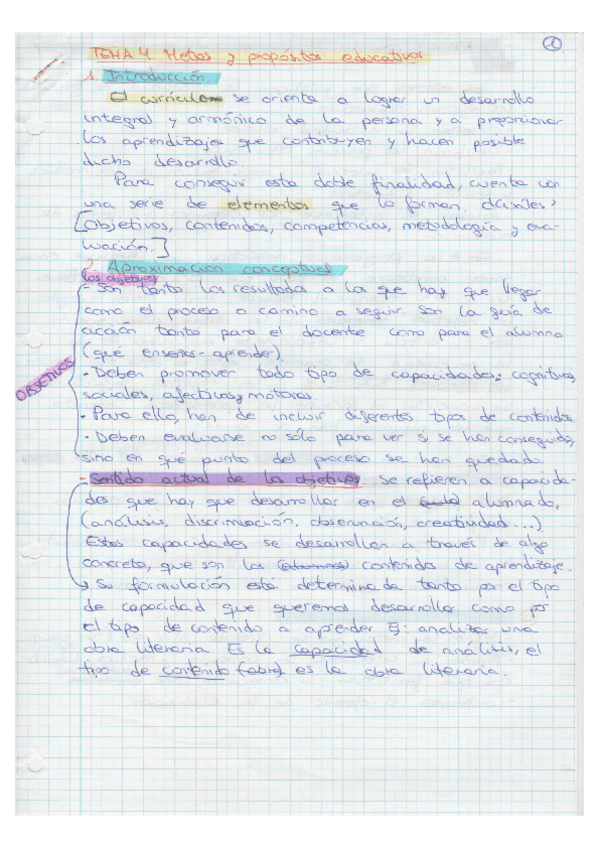 1
TEMA 4 Metas y propósitos educativos
1. Introducción
El currículo se orienta a lograr un desarrollo
integral y armónico de la persona y a proporcionar
los aprendizajes que contribuyen y hacen posible
dicho desarrollo
Para conseguir esta doble finalidad, cuenta con
una serie de elementos que lo forman, ¿cuáles?
[objetivos, contenidos, competencias, metodología y eva-
luación.]
2. Aproximación conceptual
Los objetivos
- Son tanto los resultados a los que hay que llegar
como el proceso o camino a seguir. Son la guía de
acción tanto para el docente como para el alumno
(qué enseñar - aprender)
- Deben promover todo tipo de capacidades: cognitivas,
sociales, afectivas y motoras
OBJETIVOS
- Para ello, han de incluir diferentes tipos de contenidos
- Deben evaluarse no sólo para ver si se han conseguido,
sino en qué punto del proceso se han quedado
- Sentido actual de los objetivos se refieren a capacida-
des que hay que desarrollar en el alumnado,
(análisis, discriminación, observación, creatividad...)
Estas capacidades se desarrollan a través de algo
concreto, que son los contenidos de aprendizaje.
→ Su formulación está determinada tanto por el tipo
de capacidad que queremos desarrollar como por
el tipo de contenido a aprender Ej: analizar una
obra literaria. Es la capacidad de análisis, el
tipo de contenido (sobre) es la obra literaria.